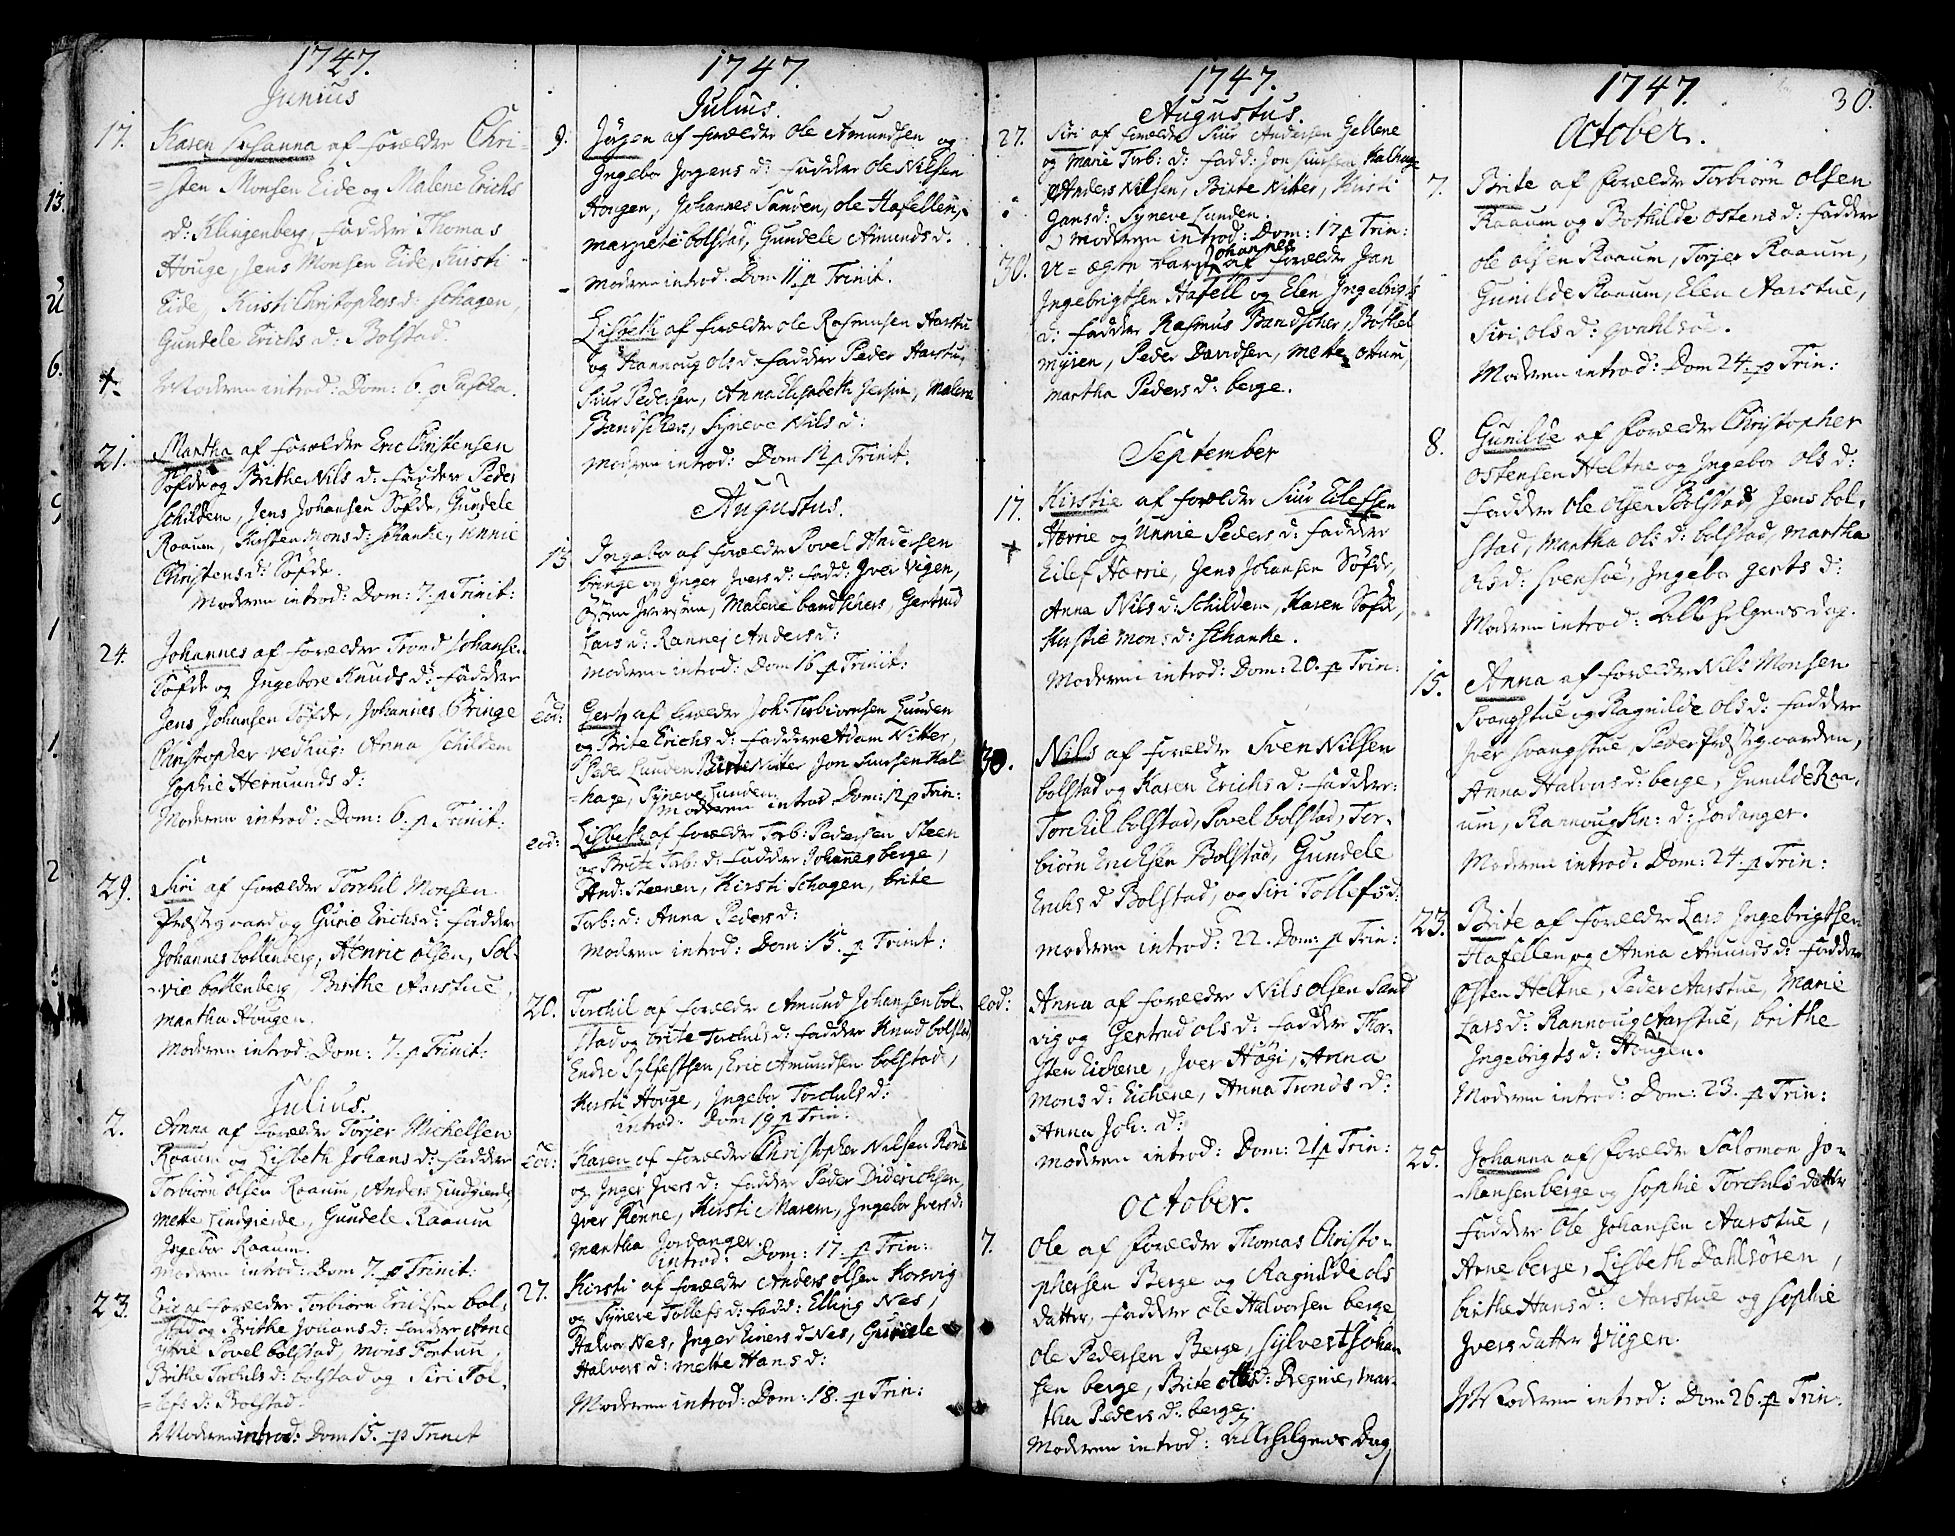 1747.
Junius
17. Karen Johanna af forældre Chri-
=sten Monsen Eide og Malene Erichs
d: Klingenberg, faddere Thomas
Houge, Jens Monsen Eide, Kirsti
Eide, Kirsti Christophersd: Schagen,
Gundele Erichs d: Bolstad.
Moderen introd: Dom: 6. p Pascha.
21. Martha af forældre Eric Christensen
Søfde og Brithe Nils d: faddere Peder
Schildem, Jens Johansen Søfde, Gundele
Raaum, Kirsten Mons d: Schanke, Unnie
Christensd: Søfde.
Moderen introd: Dom: 7. p Trinit:
24. Johannes af forældre Trond Johansen
Søfde og Ingebore Knuds d: faddere
Jens Johansen Søfde, Johannes Bringe
Christopher vedhus: Anna Schildem
Sophie Hermunds d:
Moderen introd: Dom: 6. p Trinit:
29. Siri af forældre Torchil Monsen
Præstegaard og Gurie Erichs d: faddere
Johannes bottenberg, Henric Olsen, Sol-
vie bottenberg, Birthe Aarstue,
Martha Hougen.
Moderen introd: Dom: 7. p Trinit:
Julius.
2. Anna af forældre Torjer Michelsen
Raaum og Lisbeth Johans d: faddere
Torbiörn Olsen Raaum, Anders Lindgierde,
Mette Lindgierde, Gundele Raaum
Ingebor Raaum.
Moderen introd: Dom 7. p Trinit:
23. Eric af forældre Torbiörn Ericksen bol-
stad og Brithe Johans d: faddere Arne
Povel bolstad, Mons Fortun,
Brithe Torchuls d: bolstad og Siri Tol-
=lefs d: Bolstad.
Moderen introd: Dom 15. p Trinit
1747.
Julius.
9. Jörgen af forældre Ole Amundsen og
Ingebor Jörgens d: faddere Ole Nilsen
Hougen, Johannes Sunden, Ole Hafellen,
Margrete bolstad, Gundele Amunds d.
Moderen introd: Dom 11. p Trinit.
Lisbeth af forældre Ole Rasmusen Aarstu
og Rannoug Ols d: faddere Peder Aarstu,
Siur Pedersen, Anna Elisabeth Jersin, Malene
Bandschers, Syneve Nils d:
Moderen introd: Dom 12 p Trinit.
Augustus.
13. Ingebor af forældre Povel Andersen
bringe og Inger Ivers d: fadd: Iver Vigen,
Iversen, Malene bandschers, Gertrud
Lars d: Rannej Anders d:
Moderen introd: Dom 16. p Trinit:
eod: Gert af forældre Joh: Torbiörnsen Lunden
og Brite Erichs d: faddere Adam Nitter,
Peder Lunden Birte Nitter Jon Siursen Kal
=hage, Syneve Lunden
Moderen introd Dom: 12 p Trin:
eod: Lisbeth af forældre Torb: Pedersen Steen
og Brite Torb: d: faddere Johannes berge,
And: Steenen, Kirsti Schagen, brite
Torb: d: Anna Peders d:
Moderen introd: Dom: 15. p Trinit:
20. Torchil af forældre Amund Johansen bol
stad og brite Torchuls d: faddere Knud bolstad,
Endre Sylfestsen, Eric Amundsen bolstad,
Kirsti Houge, Ingebor Torchuls d:
introd: Dom 19 p Trin:
eod: Karen af forældre Christopher Nilsen Rønne
og Inger Ivers d: faddere Peder Diderichsen,
Iver Rønne, Kirsti Marem, Ingebor Ivers d:
Martha Jordanger.
introd: Dom: 17. p Trin:
27. Kirsti af forældre Anders Olsen Korsvig
og Syneve Tollefs d: fadd: Elling Nes,
Halvor Nes, Inger Einers d Nes, Gundele
Halvors d: Mette Hans d:
Moderen introd: Dom: 18. p Trin:
1747.
Augustus.
27. Siri af forældre Siur Andersen Gellene
og Marie Torb: d: fadd: Jon Siursen Kalhage
Anders Nilsen, Birte Nitter, Kirsti
Jans d: Syneve Lunden.
Moderen introd: Dom: 17 p Trin:
30. U=ægte barn Johannes af forældre Jan
Ingebrigtsen Hafell og Elen Ingebrigts
d: faddere Rasmus Bandscher, Bottel
Myren, Peder Davidsen, Mette Ottum,
Martha Peders d: berge.
September
17. Kirstie af forældre Siur Eilefsen
Hørrie og Unnie Peders d: faddere
Eilef Hørrie, Jens Johansen Søfde,
Anna Nils d: Schildem, Karen Søfde,
Kirstie Mons d: Schanke.
Moderen introd: Dom: 20. p Trin:
30. Nils af forældre Sven Nilsen
bolstad og Karen Erichs d: faddere:
Torchil bolstad, Povel bolstad, Tor-
biörn Ericksen Bolstad, Gundele
Erichs d Bolstad, og Siri Tollefs d:
Moderen introd: 22. Dom: p Trin:
eod: Anna af forældre Nils Olsen Sand
vig og Gertrud Ols d: faddere Thor-
sten Eichene, Iver Høgi, Anna
Mons d: Eichene, Anna Tronds d:
Anna Joh: d:
Moderen introd: Dom: 21 p Trin:
October.
7. Ole af forældre Thomas Christo-
phersen Berge og Ragnilde Ols
datter, faddere Ole Halvorsen berge
Ole Pedersen Berge, Sylvest Johan
sen berge, Brite Ols d: Dregnie, Mar-
tha Peders d: berge.
Moderen introd: Allehelgens Dag
1747.
30.
October.
7. Brite af forældre Torbiörn Olsen
Raaum og Bothilde Ostens d: faddere
Ole Olsen Raaum, Torjer Raaum,
Gunilde Raaum, Elen Aarstue,
Siri Ols d: Qvahlsøe.
Moderen introd: Dom 24. p Trin:
8. Gunilde af forældre Christopher
Ostensen Heltne og Ingebor Ols d:
faddere Ole Olsen Bolstad, Jens bol-
stad, Martha Ols d: bolstad, Martha
Ols d: Svensøe, Ingebor Gerts d:
Moderen introd: Allehelgens dag.
15. Anna af forældre Nils Monsen
Svangstue og Ragnilde Ols d: faddere
Iver Svangstue, Peder Præstegaarden,
Anna Halvors d: berge, Gunilde Raa-
um, Rannoug Kn: d: Jordanger.
Moderen introd. Dom: 24. p Trin:
23. Brite af forældre Lars Ingebrigtsen
Hafellen og Anna Amunds d: faddere
Østen Heltne, Peder Aarstue, Marie
Lars d: Rannoug Aarstue, brithe
Ingebrigts d: Hougen.
Moderen introd: Dom: 23. p Trin:
25. Johanna af forældre Salomon Jo-
hansen berge og Sophie Torchuls datter
faddere Ole Johansen Aarstue,
Arne berge, Lisbeth Dahlsøren,
brithe Hans d: Aarstue og Sophie
Ivers datter Viigen.
Moderen introd: Dom 26. p Trin: